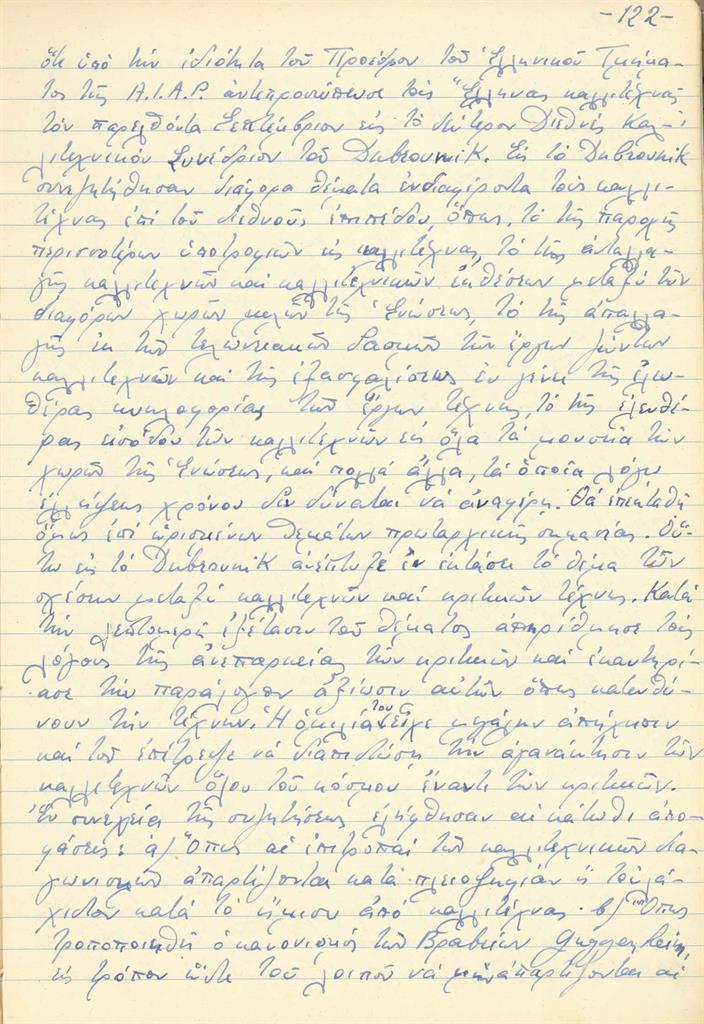 -122-
ὅτι ὑπὸ τὴν ἰδιότητα τοῦ Προέδρου τοῦ Ἑλληνικοῦ Τμήμα-
τος τῆς A.I.A.P. ἀντιπροσώπευσε τοὺς Ἕλληνας καλλιτέχνας
τὸν παρελθόντα Σεπτέμβριον εἰς τὸ δεύτερον Διεθνὲς Καλ-
λιτεχνικὸν Συνέδριον τοῦ Dubrovnik. Εἰς τὸ Dubrovnik
συνεζητήθησαν διάφορα θέματα ἐνδιαφέροντα τοὺς καλλι-
τέχνας ἐπὶ τοῦ διεθνοῦς ἐπιπέδου, ὅπως, τὸ τῆς παροχῆς
περισσοτέρων ὑποτροφιῶν εἰς καλλιτέχνας, τὸ τῆς ἀνταλλα-
γῆς καλλιτεχνῶν καὶ καλλιτεχνικῶν ἐκθέσεων μεταξὺ τῶν
διαφόρων χωρῶν μελῶν τῆς Ἑνώσεως, τὸ τῆς ἀπαλλα-
γῆς ἐκ τῶν τελωνειακῶν δασμῶν τῶν ἔργων ζώντων
καλλιτεχνῶν καὶ τῆς ἐξασφαλίσεως ἐν γένει τῆς ἐλευ-
θέρας κυκλοφορίας τῶν ἔργων τέχνης, τὸ τῆς ἐλευθέ-
ρας εἰσόδου τῶν καλλιτεχνῶν εἰς ὅλα τὰ μουσεῖα τῶν
χωρῶν τῆς Ἑνώσεως, καὶ πολλὰ ἄλλα, τὰ ὁποῖα λόγω
ἐλλείψεως χρόνου δὲν δύναται νὰ ἀναφέρη. Θὰ ἐπεκταθῆ
ὅμως ἐπὶ ὡρισμένων θεμάτων πρωταρχικῆς σημασίας. Οὕ-
τω εἰς τὸ Dubrovnik ἀνέπτυξε ἐν ἐκτάσει τὸ θέμα τῶν
σχέσεων μεταξὺ καλλιτεχνῶν καὶ κριτικῶν τέχνης. Κατὰ
τὴν λεπτομερῆ ἐξέτασιν τοῦ θέματος ἀπηρίθμησε τοὺς
λόγους τῆς ἀνεπαρκείας τῶν κριτικῶν καὶ ἐκαυτηρί-
ασε τὴν παράλογον ἀξίωσιν αὐτῶν ὅπως κατευθύ-
νουν τὴν τέχνην. Ἡ ὁμιλία του εἶχε μεγάλην ἀπήχησιν
καὶ τοῦ ἐπέτρεψε νὰ διαπιστώση τὴν ἀγανάκτησιν τῶν
καλλιτεχνῶν ὅλου τοῦ κόσμου ἔναντι τῶν κριτικῶν.
Ἐν συνεχεία τῆς συζητήσεως ἐλήφθησαν αἱ κάτωθι ἀπο-
φάσεις: α) Ὅπως αἱ ἐπιτροπαὶ τῶν καλλιτεχνικῶν δια-
γωνισμῶν ἀπαρτίζονται κατὰ πλειοψηφίαν ἢ τοὐλά-
χιστον κατὰ τὸ ἥμισυ ἀπὸ καλλιτέχνας. β) Ὅπως
τροποποιηθῆ ὁ κανονισμὸς τῶν Βραβείων Guggenheim,
εἰς τρόπον ὥστε τοῦ λοιποῦ νὰ μὴν ἀπαρτίζονται αἱ